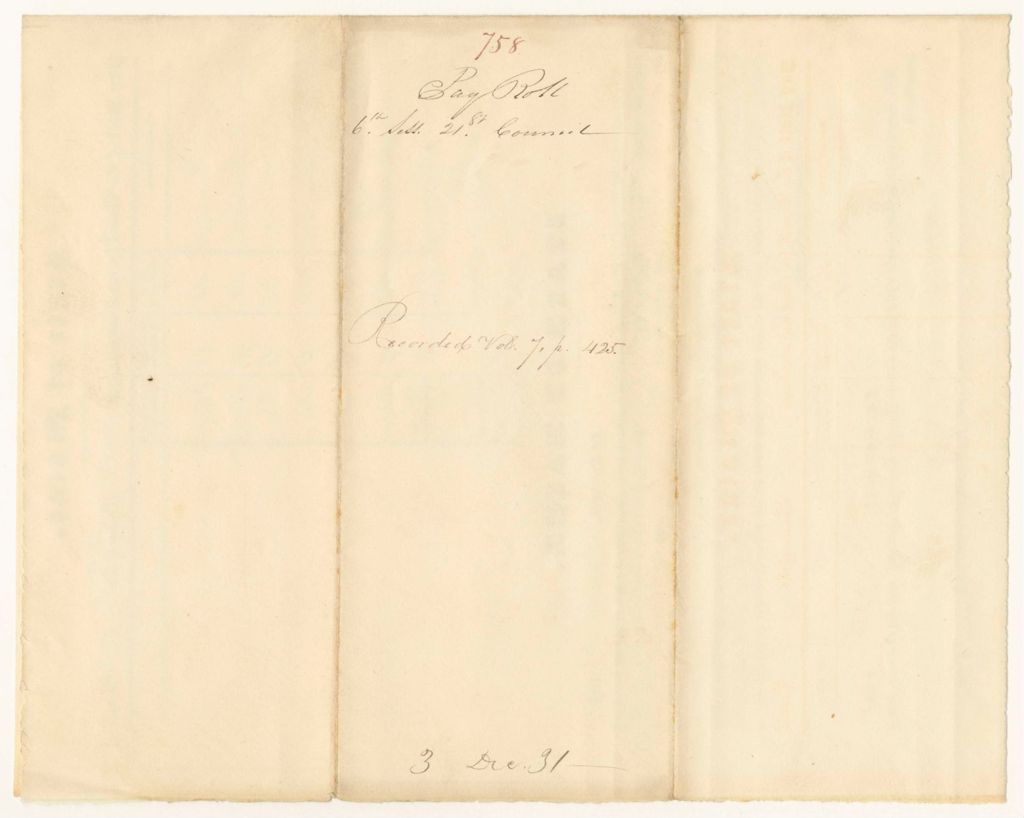 758
Pay Roll
6th Sess. 21st Council
Recorded Vol. 7, p. 425.
3 Dec. 31